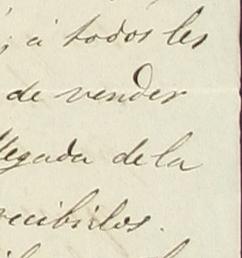 ; á todos les
de vender
llegada de la
recibirlos.